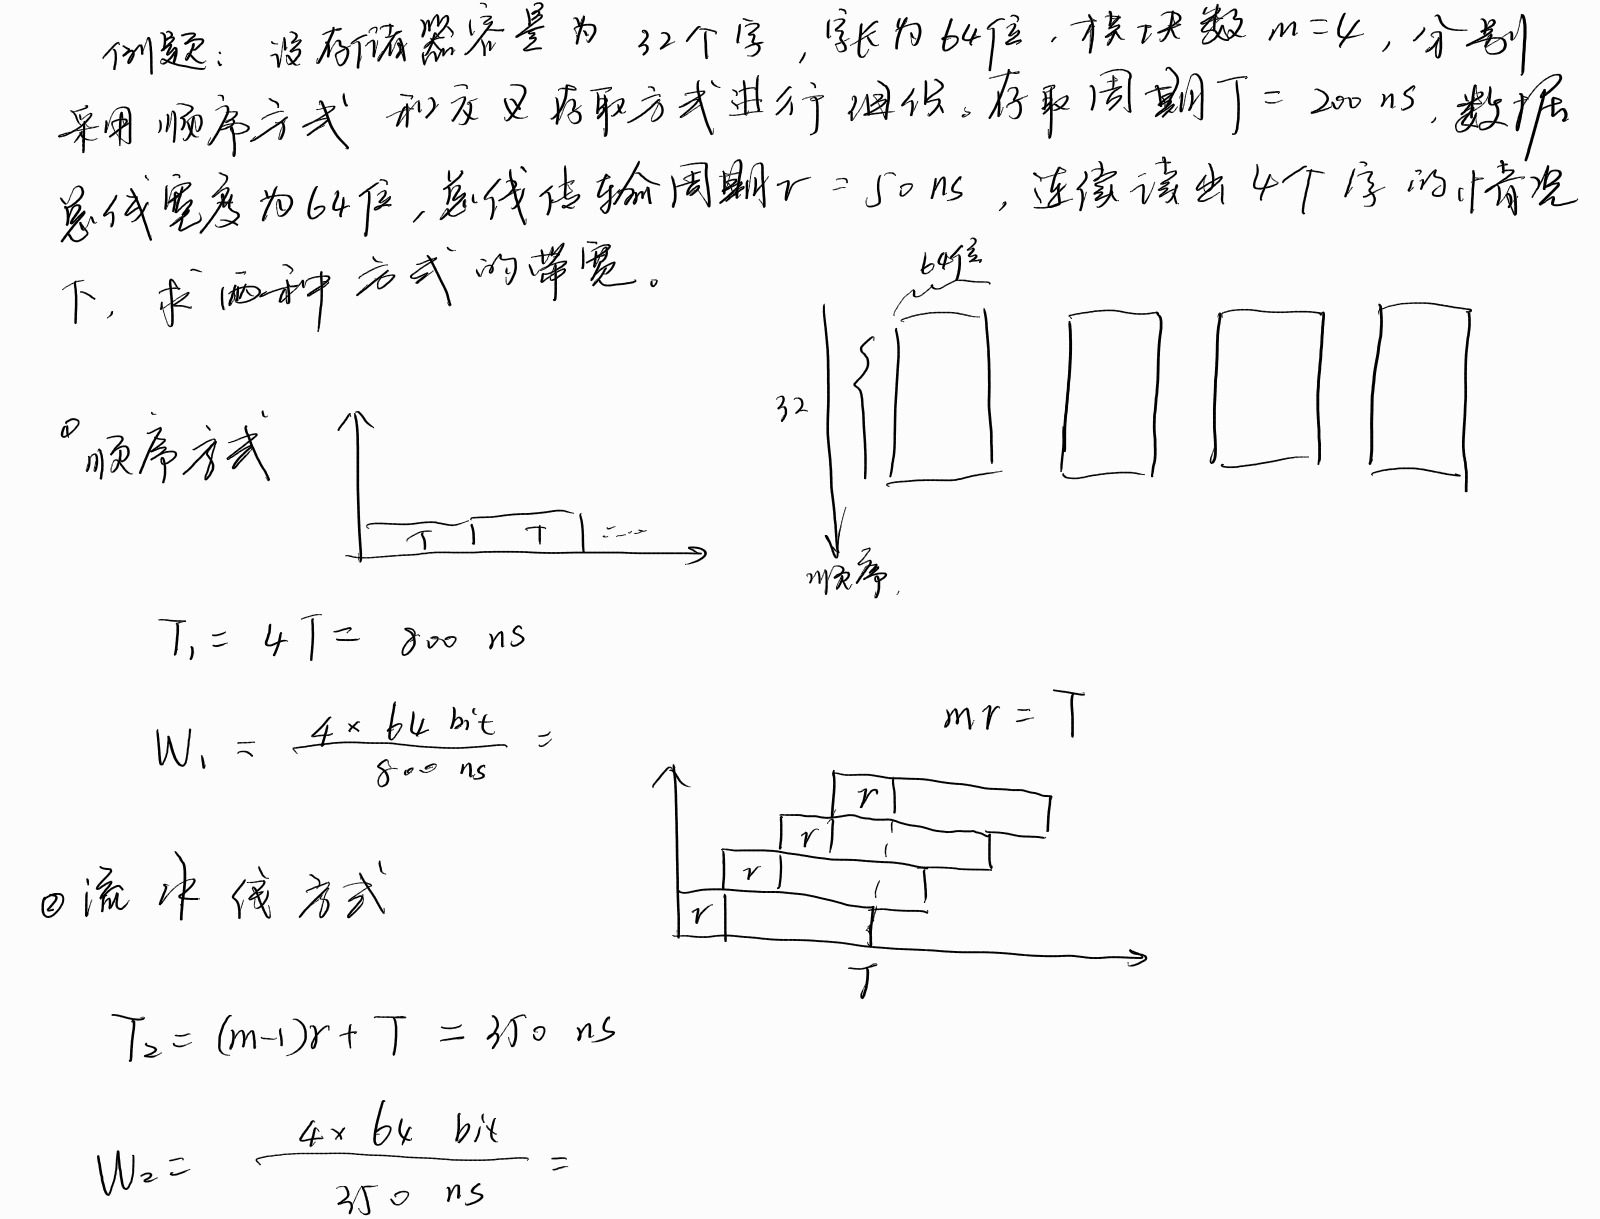 例题：设存储器容量为 32个字，字长为64位，模块数 m=4，分别
采用顺序方式和交叉存取方式进行组织。存取周期T = 200 ns，数据
总线宽度为64位，总线传输周期r = 50 ns，连续读出4个字的情况
下，求两种方式的带宽。
64位
32
顺序.
① 顺序方式
T T
T₁ = 4T = 800 ns
W₁ = 4 × 64 bit / 800 ns =
mr = T
r
r
r
r
T
② 流水线方式
T₂ = (m-1)r + T = 350 ns
W₂ = 4 × 64 bit / 350 ns =